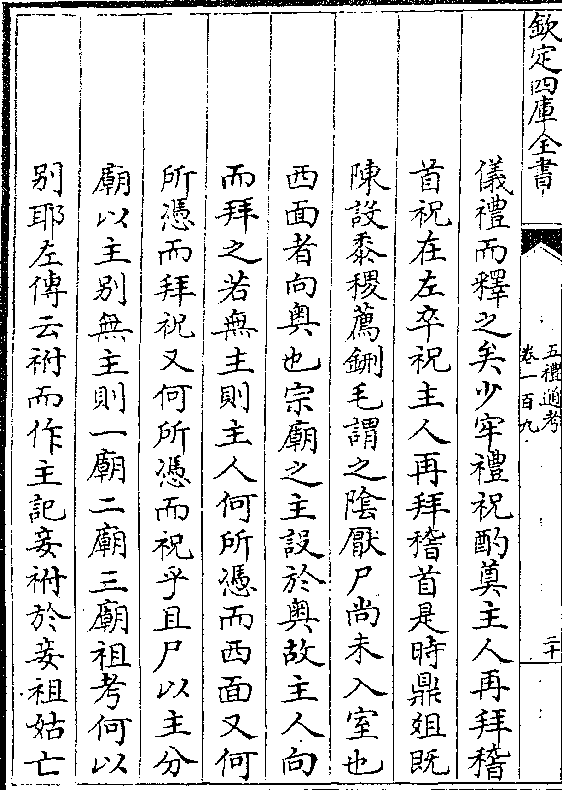 欽定四庫全書
五禮通考
卷一百九
二十
儀禮而釋之矣少牢禮祝酌奠主人再拜稽
首祝在左卒祝主人再拜稽首是時鼎俎既
陳設黍稷薦鉶毛謂之隂厭尸尚未入室也
西面者向奥也宗廟之主設於奥故主人向
而拜之若無主則主人何所憑而西面又何
所憑而拜祝又何所憑而祝乎且尸以主分
廟以主别無主則一廟二廟三廟祖考何以
别耶左傳云祔而作主記妾祔於妾祖姑亡